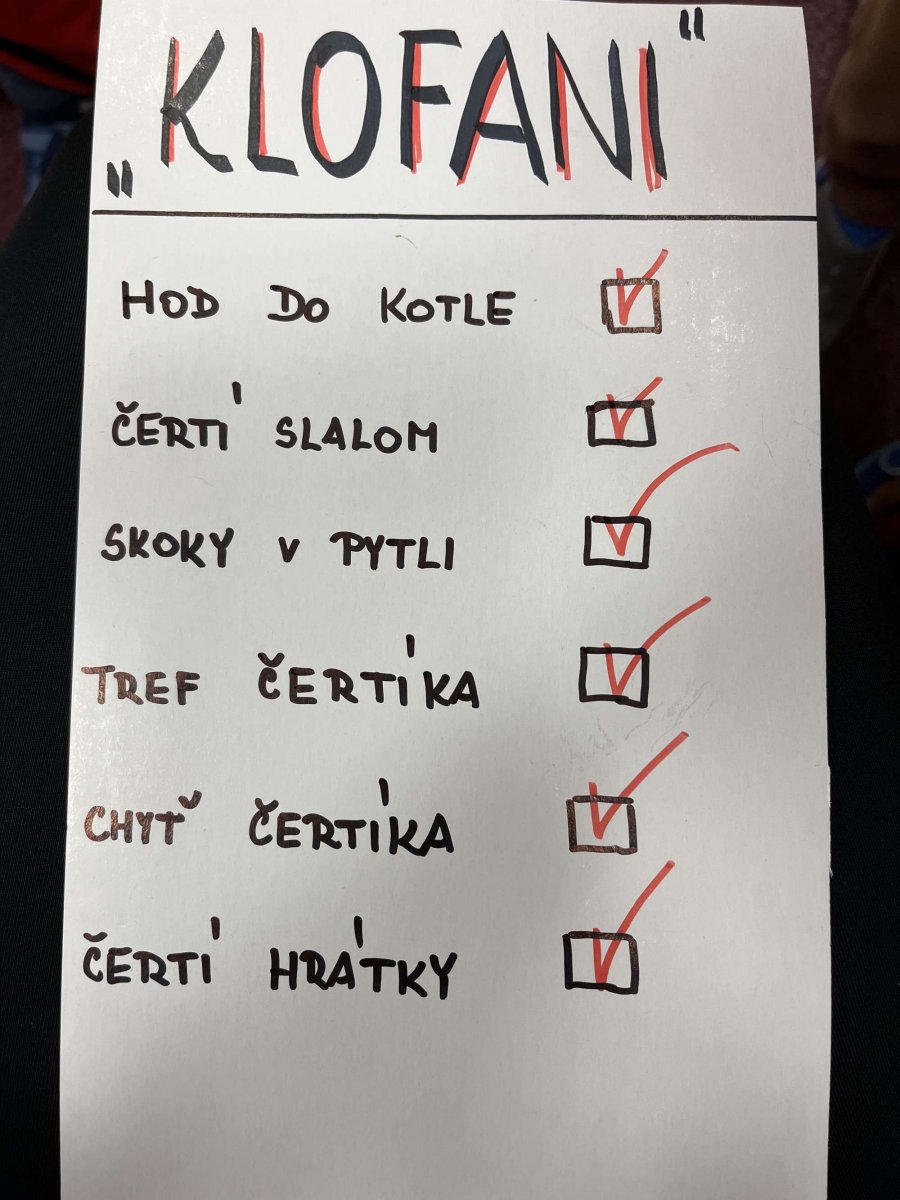 „KLOFANI"
HOD DO KOTLE
ČERTÍ SLALOM
SKOKY V PYTLI
TREF ČERTÍKA
CHYŤ ČERTÍKA
ČERTÍ HRÁTKY